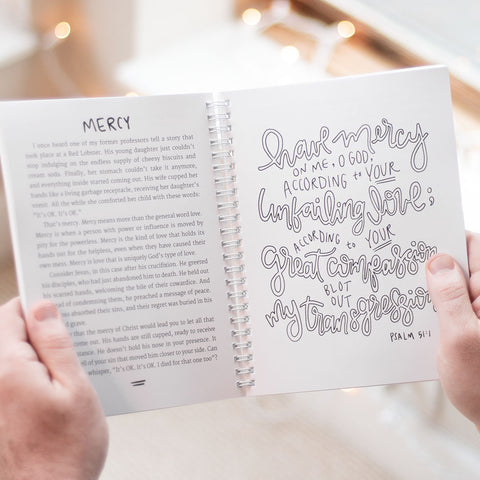 MERCY
I once heard one of my former professors tell a story that
took place at a Red Lobster. His young daughter just couldn't
stop indulging on the endless supply of cheesy biscuits and
cream soda. Finally, her stomach couldn't take it anymore,
and everything inside started coming out. His wife cupped her
hands like a living garbage receptacle, receiving her daughter's
vomit. All the while she comforted her child with these words:
"It's OK. It's OK."
That's mercy. Mercy means more than the general word love.
Mercy is when a person with power or influence is moved by
pity for the powerless. Mercy is the kind of love that holds its
hands out for the helpless, even when they have caused their
own mess. Mercy is love that is uniquely God's type of love.
Consider Jesus, in this case after his crucifixion. He greeted
his disciples, who had just abandoned him to death. He held out
his scarred hands, welcoming the bile of their cowardice. And
of condemning them, he preached a message of peace.
absorbed their sins, and their regret was buried in his
grave.
that the mercy of Christ would lead you to let all that
come out. His hands are still cupped, ready to receive
He doesn't hold his nose in your presence. It
of your sin that moved him closer to your side. Can
whisper, "It's OK. It's OK. I died for that one too"?
have mercy
ON ME, O GOD,
ACCORDING to YOUR
unfailing love;
ACCORDING to YOUR
Great compassion
BLOT
OUT
my transgression
PSALM 51:1